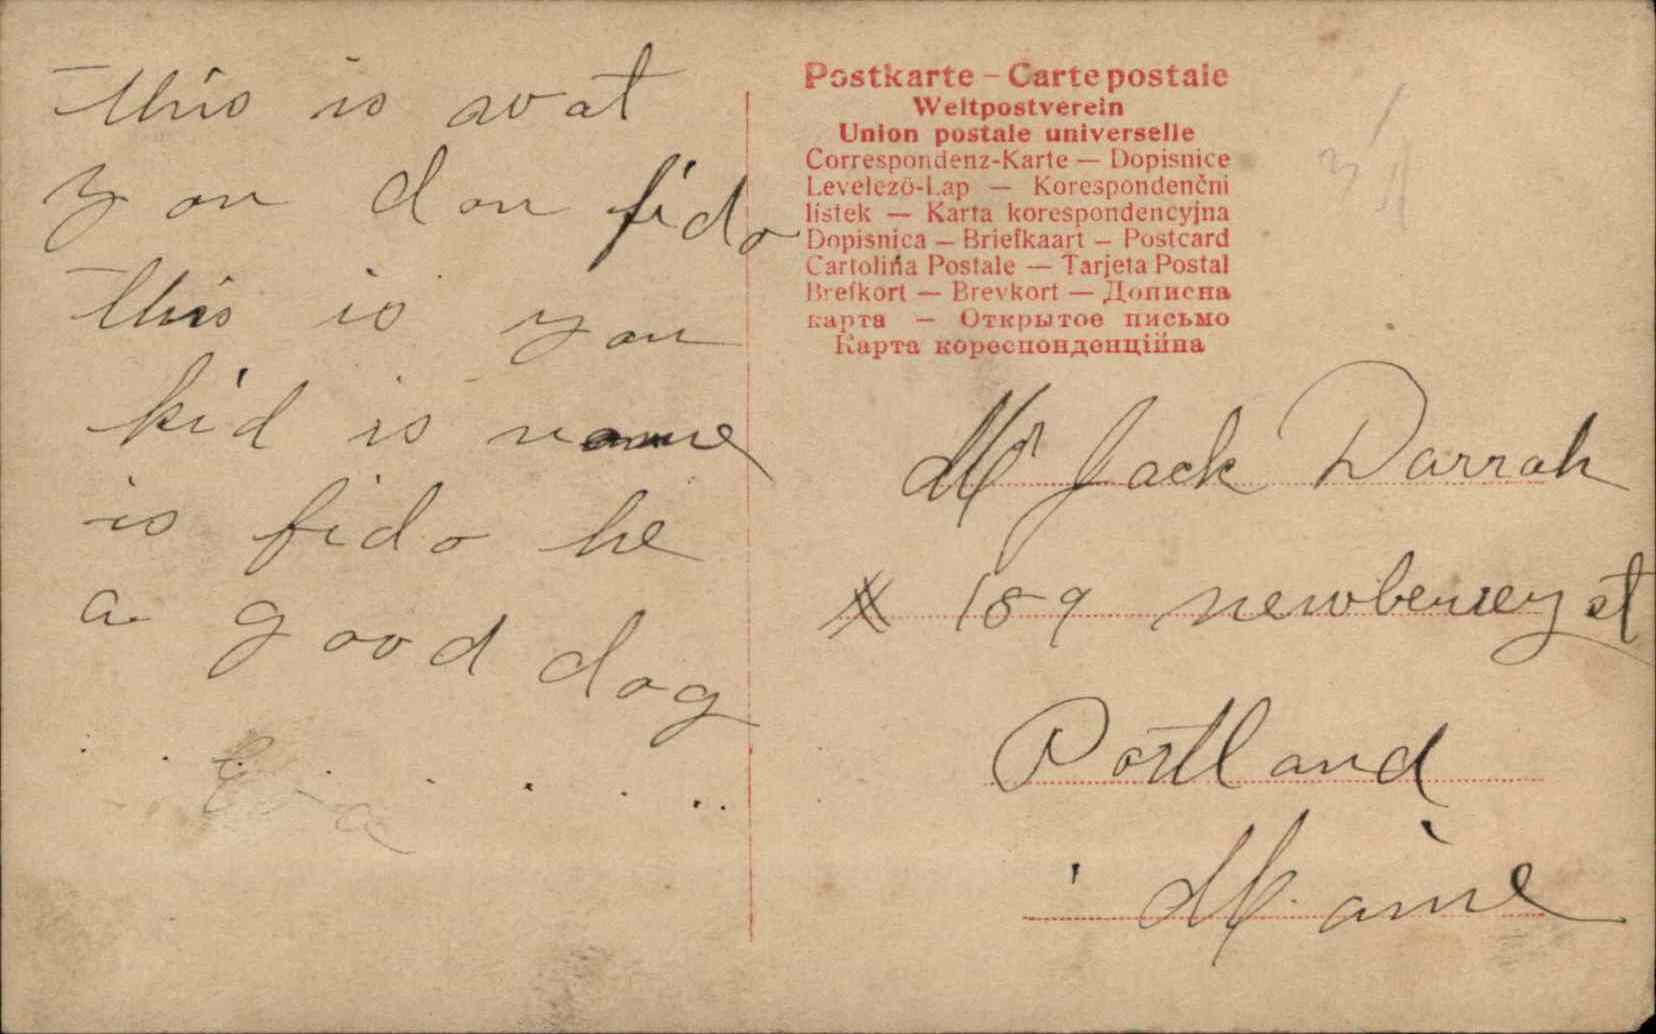 this is wat
you don fido
this is you
kid is name
is fido he
a good dog
Postkarte – Carte postale
Weltpostverein
Union postale universelle
Correspondenz-Karte — Dopisnice
Levelező-Lap — Korespondenční
listek — Karta korespondencyjna
Dopisnica — Briefkaart — Postcard
Cartolina Postale — Tarjeta Postal
Brefkort — Brevkort — Дописна
карта — Открытое письмо
Карта кореспонденційна
Mr Jack Darrah
189 newberrey st
Portland
Maine